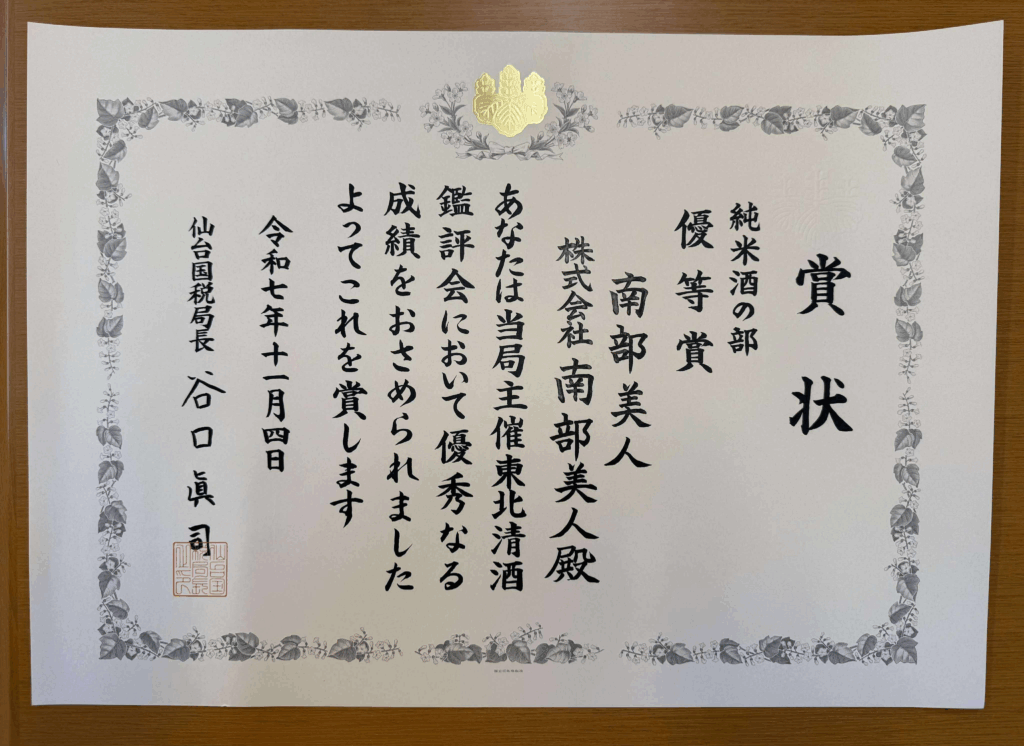 賞状
純米酒の部
優等賞
南部美人
株式会社南部美人殿
あなたは当局主催東北清酒
鑑評会において優秀なる
成績をおさめられました
よってこれを賞します
令和七年十一月四日
仙台国税局長 谷口眞司